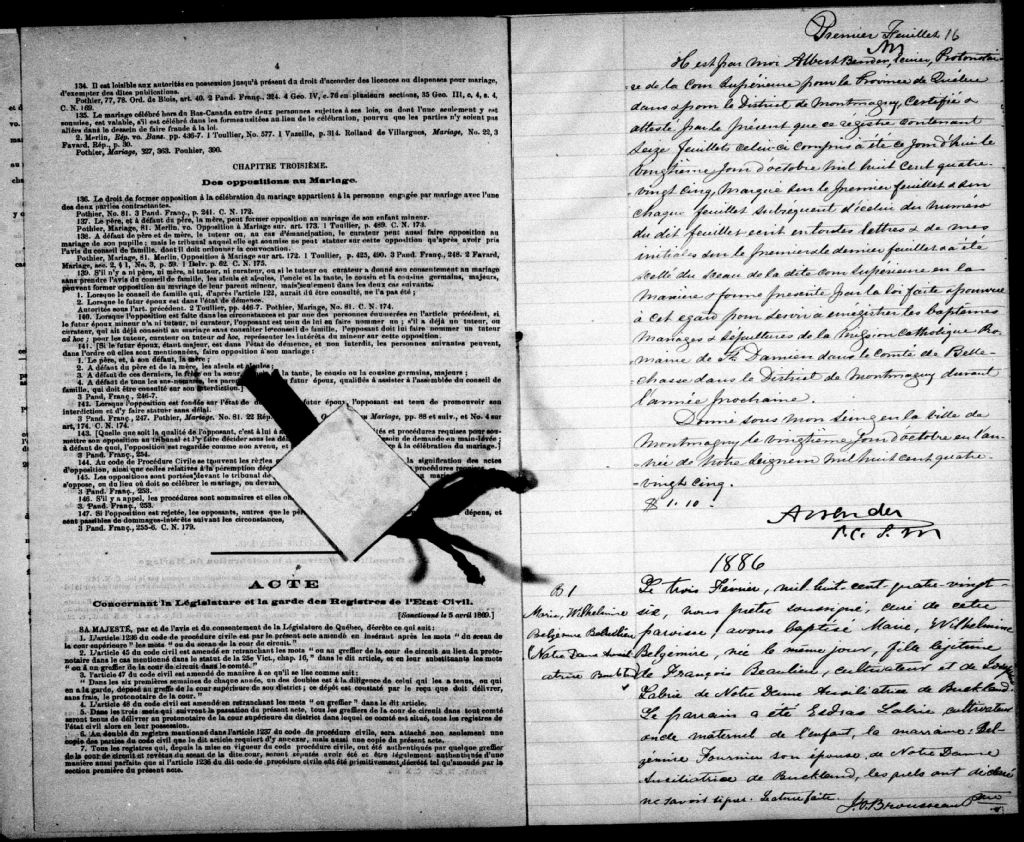 4
134. Il est loisible aux autorités en possession jusqu'à présent du droit d'accorder des licences ou dispenses pour mariage,
d'exempter des dites publications.
Pothier, 77, 78. Ord. de Blois, art. 40. 2 Pand. Franç., 324. 4 Geo. IV, c. 76 en plusieurs sections, 35 Geo. III, c, 4, s. 4,
C. N. 169.
135. Le mariage célébré hors du Bas-Canada entre deux personnes sujettes à ses lois, ou dont l'une seulement y est
soumise, est valable, s'il est célébré dans les formes usitées au lieu de la célébration, pourvu que les parties n'y soient pas
allées dans le dessein de faire fraude à la loi.
2. Merlin, Rép. vo. Bans. pp. 436-7. 1 Toullier, No. 577. 1 Vazeille, p. 314. Rolland de Villargues, Mariage, No. 22, 3
Favard, Rép., p. 30.
Pothier, Mariage, 327, 363. Pouhier, 390.
CHAPITRE TROISIÈME.
Des oppositions au Mariage.
136. Le droit de former opposition à la célébration du mariage appartient à la personne engagée par mariage avec l'une
des deux parties contractantes.
Pothier, No. 81. 3 Pand. Franç., p. 241. C. N. 172.
137. Le père, et à défaut du père, la mère, peut former opposition au mariage de son enfant mineur.
Pothier, Mariage, 81. Merlin, vo. Opposition à Mariage sur art. 173. 1 Toullier, p. 489. C. N. 173.
138. A défaut de père et de mère, le tuteur ou, au cas d'émancipation, le curateur peut aussi faire opposition au
mariage de son pupille; mais le tribunal auquel elle est soumise ne peut statuer sur cette opposition qu'après avoir pris
l'avis du conseil de famille, dont il doit ordonner la convocation.
Pothier, Mariage, 81. Merlin, Opposition à Mariage sur art. 172. 1 Toullier, p. 425, 490. 3 Pand. Franç., 248. 2 Favard,
Mariage, sec. 2, § 1, No. 3, p. 59. 1 Delv. p. 62. C. N. 175.
139. S'il n'y a ni père, ni mère, ni tuteur, ni curateur, ou si le tuteur ou curateur a donné son consentement au mariage
sans prendre l'avis du conseil de famille, les aïeuls et aïeules, l'oncle et la tante, le cousin et la cousine germains, majeurs,
peuvent former opposition au mariage de leur parent mineur, mais seulement dans les deux cas suivants.
1. Lorsque le conseil de famille qui, d'après l'article 122, aurait dû être consulté, ne l'a pas été;
2. Lorsque le futur époux est dans l'état de démence.
Autorités sous l'art. précédent. 2 Toullier, pp. 446-7. Pothier, Mariage, No. 81. C. N. 174.
140. Lorsque l'opposition est faite dans les circonstances et par une des personnes énumérées en l'article précédent, si
le futur époux mineur n'a ni tuteur, ni curateur, l'opposant est tenu de lui en faire nommer un; s'il a déjà un tuteur, ou
curateur, qui ait déjà consenti au mariage sans consulter le conseil de famille, l'opposant doit lui faire nommer un tuteur
ad hoc; pour les tuteur, curateur ou tuteur ad hoc, représenter les intérêts du mineur sur cette opposition.
141. [Si le futur époux, étant majeur, est dans l'état de démence, et non interdit, les personnes suivantes peuvent,
dans l'ordre où elles sont mentionnées, faire opposition à son mariage:
1. Le père, et, à son défaut, la mère;
2. A défaut du père et de la mère, les aïeuls et aïeules;
3. A défaut de ces derniers, le frère ou la sœur, la tante, le cousin ou la cousine germains, majeurs;
4. A défaut de tous les sus-nommés, les futur époux, qualifiés à assister à l'assemblée du conseil de
famille, qui doit être consulté sur son interdiction.]
3 Pand. Franç., 246-7.
142. Lorsque l'opposition est fondée sur l'état de futur époux, l'opposant est tenu de promouvoir son
interdiction et d'y faire statuer sans délai.
3 Pand. Franç., 247. Pothier, Mariage, No. 81. 22 Rép. Mariage, pp. 88 et suiv., et No. 4 sur
art. 174. C. N. 174.
143. [Quelle que soit la qualité de l'opposant, c'est à lui à et procédures requises pour sou-
mettre son opposition au tribunal et l'y faire décider sous les de demande en main-levée;
à défaut de quoi, l'opposition est regardée comme non avenue, et à la célébration du mariage.]
3 Pand. Franç., 254.
144. Au code de Procédure Civile se trouvent les règles la signification des actes
d'opposition, ainsi que celles relatives à la péremption procédures requises.
145. Les oppositions sont portées devant le tribunal de
s'oppose, ou du lieu où doit se célébrer le mariage, ou devant
3 Pand. Franç., 253.
146. S'il y a appel, les procédures sont sommaires et elles
3 Pand. Franç., 253.
147. Si l'opposition est rejetée, les opposants, autres que le dépens, et
sont passibles de dommages-intérêts suivant les circonstances,
3 Pand. Franç., 255-6. C. N. 179.
ACTE
Concernant la Législature et la garde des Registres de l'Etat Civil.
[Sanctionné le 5 avril 1869.]
SA MAJESTÉ, par et de l'avis et du consentement de la Législature de Québec, décrète ce qui suit:
1. L'article 1236 du code de procédure civile est par le présent acte amendé en insérant après les mots "du sceau de
la cour supérieure" les mots "ou du sceau de la cour de circuit."
2. L'article 45 du code civil est amendé en retranchant les mots "ou au greffier de la cour de circuit au lieu du protho-
notaire dans le cas mentionné dans le statut de la 25e Vict., chap. 16," dans le dit article, et en leur substituants les mots
"ou à un greffier de la cour de circuit dans le comté."
3. L'article 47 du code civil est amendé de manière à ce qu'il se lise comme suit:
"Dans les six premières semaines de chaque année, un des doubles est à la diligence de celui qui les a tenus, ou qui
en a la garde, déposé au greffe de la cour supérieure de son district; ce dépôt est constaté par le reçu que doit délivrer,
sans frais, le protonotaire de la cour."
4. L'article 48 du code civil est amendé en retranchant les mots "ou greffier" dans le dit article.
5. Dans les trois mois qui suivront la passation du présent acte, tous les greffiers de la cour de circuit dans tout comté
seront tenus de délivrer au protonotaire de la cour supérieure du district dans lequel ce comté est situé, tous les registres de
l'état civil alors en leur possession.
6. Au double du registre mentionné dans l'article 1237 du code de procédure civile, sera attaché non seulement une
copie des parties du code civil que le dit article requiert d'y annexer, mais aussi une copie du présent acte.
7. Tous les registres qui, depuis la mise en vigueur du code procédure civile, ont été authentiqués par quelque greffier
de la cour de circuit et revêtus du sceau de la dite cour, seront réputés avoir été et être légalement authentiqués d'une
manière aussi parfaite que si l'article 1236 du dit code de procédure civile eût été primitivement décrété tel qu'amendé par la
section première du présent acte.
Premier Feuillet 16
Il est par moi Albert Bender, Ecuier, Protonotai
re de la Cour Supérieure pour la Province de Québec
dans & pour le District de Montmagny, Certifié &
attesté par le présent que ce régistre contenant
seize feuillets celui-ci compris a été ce jourd'hui le
vingtième jour d'octobre mil huit cent quatre-
vingt cinq, marqué sur le premier feuillet & sur
chaque feuillet subséquent d'icelui du numero
du dit feuillet écrit en toutes lettres & de mes
initiales sur le premier & le dernier feuillet a été
scellé du sceau de la dite cour Supérieure en la
manière & forme présente par la loi faite & pourvue
à cet égard pour servir à enregistrer les baptêmes
Mariages & Sépultures de la Mission Catholique Ro-
maine de St. Damien dans le Comté de Belle-
chasse dans le District de Montmagny durant
l'année prochaine.
Donné sous mon seing en la ville de
Montmagny le vingtième jour d'octobre en l'an-
née de Notre Seigneur mil huit cent quatre-
vingt cinq.
$ 1.10.
A Bender
P. C. S. M
1886
B 1
Marie, Wilhelmine
Belgémire
(Notre Dame Auxil
iatrice Buckland)
Le trois Février, mil huit-cent-quatre-vingt-
six, nous prêtre soussigné, curé de cette
paroisse, avons baptisé Marie, Wilhelmine
Belgémire, née le même jour, fille légitime
de François Beaulieu, cultivateur et de
Labrie de Notre Dame Auxiliatrice de Buckland.
Le parrain a été Esdras Labrie, cultivateur
oncle maternel de l'enfant, la marraine Bel-
gémire Fournier son épouse, de Notre Dame
Auxiliatrice de Buckland, lesquels ont déclaré
ne savoir signer. Lecture faite.
J. O. Brousseau Ptre